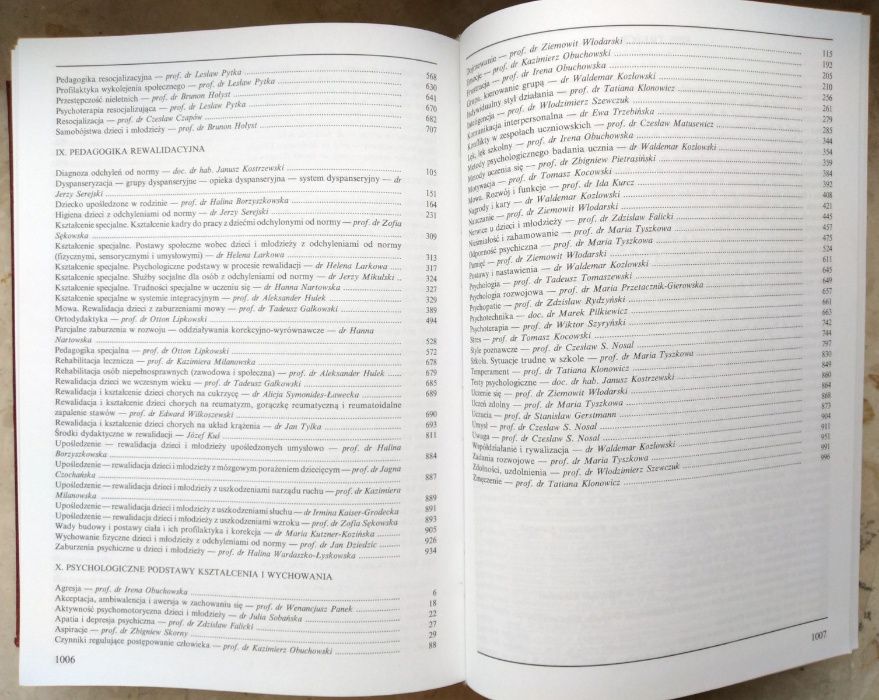 Pedagogika resocjalizacyjna — prof. dr Lesław Pytka 568
Profilaktyka wykolejenia społecznego — prof. dr Lesław Pytka 630
Przestępczość nieletnich — prof. dr Brunon Hołyst 641
Psychoterapia resocjalizująca — prof. dr Lesław Pytka 670
Resocjalizacja — prof. dr Czesław Czapów 682
Samobójstwa dzieci i młodzieży — prof. dr Brunon Hołyst 707
IX. PEDAGOGIKA REWALIDACYJNA
Diagnoza odchyleń od normy — doc. dr hab. Janusz Kostrzewski 105
Dyspanseryzacja — grupy dyspanseryjne — opieka dyspanseryjna — system dyspanseryjny — dr
Jerzy Serejski 151
Dziecko upośledzone w rodzinie — prof. dr Halina Borzyszkowska 164
Higiena dzieci z odchyleniami od normy — dr Jerzy Serejski 231
Kształcenie specjalne. Kształcenie kadry do pracy z dziećmi odchylonymi od normy — prof. dr Zofia
Sękowska 309
Kształcenie specjalne. Postawy społeczne wobec dzieci i młodzieży z odchyleniami od normy
(fizycznymi, sensorycznymi i umysłowymi) — dr Helena Larkowa 313
Kształcenie specjalne. Psychologiczne podstawy w procesie rewalidacji — dr Helena Larkowa 317
Kształcenie specjalne. Służby socjalne dla osób z odchyleniami od normy — dr Jerzy Mikulski 324
Kształcenie specjalne. Trudności specjalne w uczeniu się — dr Hanna Nartowska 327
Kształcenie specjalne w systemie integracyjnym — prof. dr Aleksander Hulek 329
Mowa. Rewalidacja dzieci z zaburzeniami mowy — prof. dr Tadeusz Gałkowski 389
Ortodydaktyka — prof. dr Otton Lipkowski 494
Parcjalne zaburzenia w rozwoju — oddziaływania korekcyjno-wyrównawcze — dr Hanna
Nartowska 528
Pedagogika specjalna — prof. dr Otton Lipkowski 572
Rehabilitacja lecznicza — prof. dr Kazimiera Milanowska 678
Rehabilitacja osób niepełnosprawnych (zawodowa i społeczna) — prof. dr Aleksander Hulek 679
Rewalidacja dzieci we wczesnym wieku — prof. dr Tadeusz Gałkowski 685
Rewalidacja i kształcenie dzieci chorych na cukrzycę — dr Alicja Symonides-Ławecka 689
Rewalidacja i kształcenie dzieci chorych na reumatyzm, gorączkę reumatyczną i reumatoidalne
zapalenie stawów — prof. dr Edward Wilkoszewski 690
Rewalidacja i kształcenie dzieci chorych na układ krążenia — dr Jan Tylka 693
Środki dydaktyczne w rewalidacji — Józef Kuś 811
Upośledzenie — rewalidacja dzieci i młodzieży upośledzonych umysłowo — prof. dr Halina
Borzyszkowska 884
Upośledzenie — rewalidacja dzieci i młodzieży z mózgowym porażeniem dziecięcym — prof. dr Jagna
Czochańska 887
Upośledzenie — rewalidacja dzieci i młodzieży z uszkodzeniami narządu ruchu — prof. dr Kazimiera
Milanowska 889
Upośledzenie — rewalidacja dzieci i młodzieży z uszkodzeniami słuchu — dr Irmina Kaiser-Grodecka 891
Upośledzenie — rewalidacja dzieci i młodzieży z uszkodzeniami wzroku — prof. dr Zofia Sękowska 893
Wady budowy i postawy ciała i ich profilaktyka i korekcja — dr Maria Kutzner-Kozińska 905
Wychowanie fizyczne dzieci i młodzieży z odchyleniami od normy — prof. dr Jan Dziedzic 926
Zaburzenia psychiczne u dzieci i młodzieży — prof. dr Halina Wardaszko-Łyskowska 934
X. PSYCHOLOGICZNE PODSTAWY KSZTAŁCENIA I WYCHOWANIA
Agresja — prof. dr Irena Obuchowska 6
Akceptacja, ambiwalencja i awersja w zachowaniu się — prof. dr Wenancjusz Panek 18
Aktywność psychomotoryczna dzieci i młodzieży — dr Julia Sobańska 22
Apatia i depresja psychiczna — prof. dr Zdzisław Falicki 27
Aspiracje — prof. dr Zbigniew Skorny 29
Czynniki regulujące postępowanie człowieka — prof. dr Kazimierz Obuchowski 88
1006
Dojrzewanie — prof. dr Ziemowit Włodarski 115
Emocje — prof. dr Kazimierz Obuchowski 192
Frustracja — prof. dr Irena Obuchowska 205
Grupa, kierowanie grupą — dr Waldemar Kozłowski 210
Indywidualny styl działania — prof. dr Tatiana Klonowicz 256
Inteligencja — prof. dr Włodzimierz Szewczuk 261
Komunikacja interpersonalna — dr Ewa Trzebińska 279
Konflikty w zespołach uczniowskich — prof. dr Czesław Matusewicz 285
Lęk, lęk szkolny — prof. dr Irena Obuchowska 344
Metody psychologicznego badania ucznia — dr Waldemar Kozłowski 354
Metody uczenia się — prof. dr Zbigniew Pietrasiński 359
Motywacja — prof. dr Tomasz Kocowski 384
Mowa. Rozwój i funkcje — prof. dr Ida Kurcz 392
Nagrody i kary — dr Waldemar Kozłowski 408
Nauczanie — prof. dr Ziemowit Włodarski 421
Nerwice u dzieci i młodzieży — prof. dr Zdzisław Falicki 445
Nieśmiałość i zahamowanie — prof. dr Maria Tyszkowa 457
Odporność psychiczna — prof. dr Maria Tyszkowa 475
Pamięć — prof. dr Ziemowit Włodarski 524
Postawy i nastawienia — dr Waldemar Kozłowski 611
Psychologia — prof. dr Tadeusz Tomaszewski 645
Psychologia rozwojowa — prof. dr Maria Przetacznik-Gierowska 649
Psychopatie — prof. dr Zdzisław Rydzyński 657
Psychotechnika — doc. dr Marek Pilkiewicz 661
Psychoterapia — prof. dr Wiktor Szyryński 663
Stres — prof. dr Tomasz Kocowski 742
Style poznawcze — prof. dr Czesław S. Nosal 744
Szkoła. Sytuacje trudne w szkole — prof. dr Maria Tyszkowa 797
Temperament — prof. dr Tatiana Klonowicz 830
Testy psychologiczne — doc. dr hab. Janusz Kostrzewski 849
Uczenie się — prof. dr Ziemowit Włodarski 860
Uczeń zdolny — prof. dr Maria Tyszkowa 864
Uczucia — prof. dr Stanisław Gerstmann 868
Umysł — prof. dr Czesław S. Nosal 873
Uwaga — prof. dr Czesław S. Nosal 904
Współdziałanie i rywalizacja — dr Waldemar Kozłowski 911
Zadania rozwojowe — prof. dr Maria Tyszkowa 951
Zdolności, uzdolnienia — prof. dr Włodzimierz Szewczuk 991
Zmęczenie — prof. dr Tatiana Klonowicz 996
1007